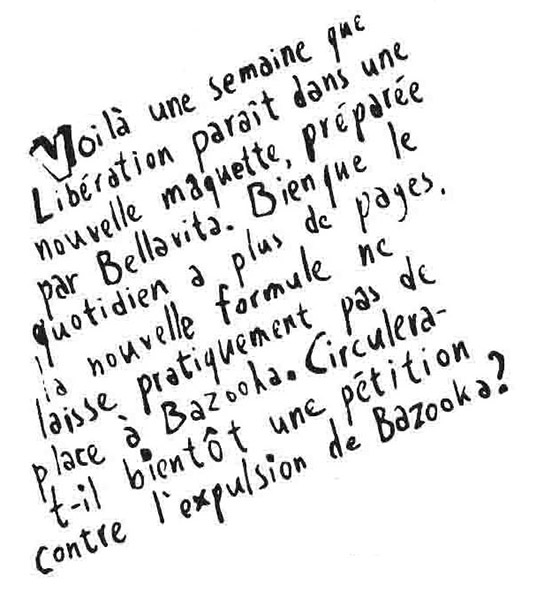 Voilà une semaine que
Libération paraît dans une
nouvelle maquette, préparée
par Bellavita. Bien que le
quotidien a plus de pages,
la nouvelle formule ne
laisse pratiquement pas de
place à Bazooka. Circulera-
t-il bientôt une pétition
contre l'expulsion de Bazooka?